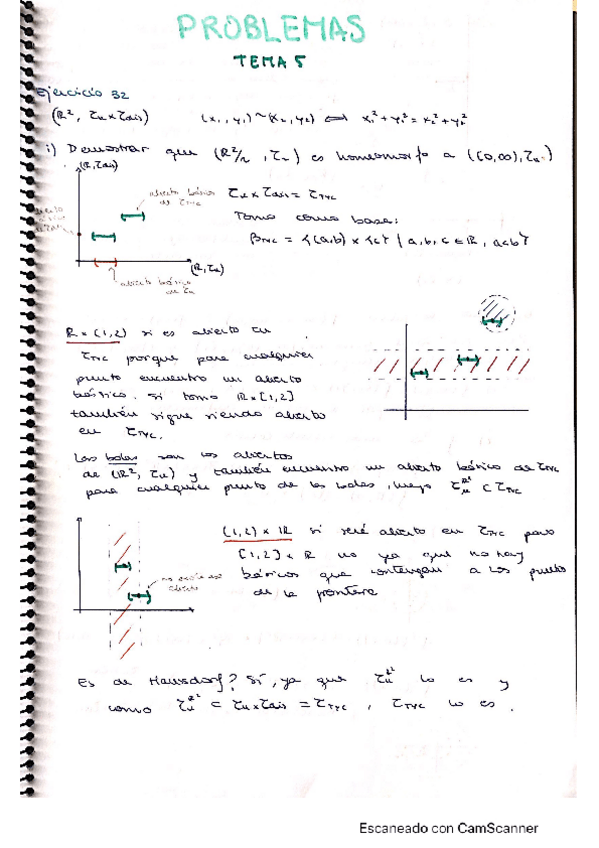 PROBLEMAS
TEMA 5
Ejercicio 32
(ℝ², τu × τdis) (x₁, y₁) ~ (x₂, y₂) ⟺ x₁² + y₁² = x₂² + y₂²
i) Demostrar que (ℝ²/~, τ~) es homeomorfo a ([0,∞), τu)
(ℝ, τdis)
abierto básico de τTYC
τu × τdis = τTYC
Tomo como base:
βTYC = {(a,b) × {c} / a, b, c ∈ ℝ, a<b}
(ℝ, τu)
abierto básico de τu
ℝ × (1,2) si es abierto en
τTYC porque para cualquier
punto encuentro un abierto
básico. Si tomo ℝ × [1,2]
también sigue siendo abierto
en τTYC.
Las bolas son los abiertos
de (ℝ², τu) y también encuentro un abierto básico de τTYC
para cualquier punto de las bolas, luego τu^ℝ² ⊂ τTYC
(1,2) × ℝ si será abierto en τTYC pero
[1,2] × ℝ no ya que no hay
básicos que contengan a los puntos
de la frontera
no
abierto
Es de Hausdorf? Sí, ya que τu^ℝ² lo es y
como τu^ℝ² ⊂ τu × τdis = τTYC, τTYC lo es.
Escaneado con CamScanner